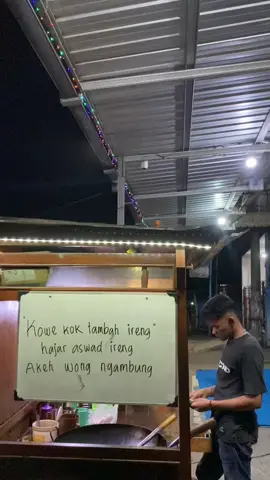 "Kowe kok tambah ireng"
hajar aswad ireng
Akeh wong ngambung